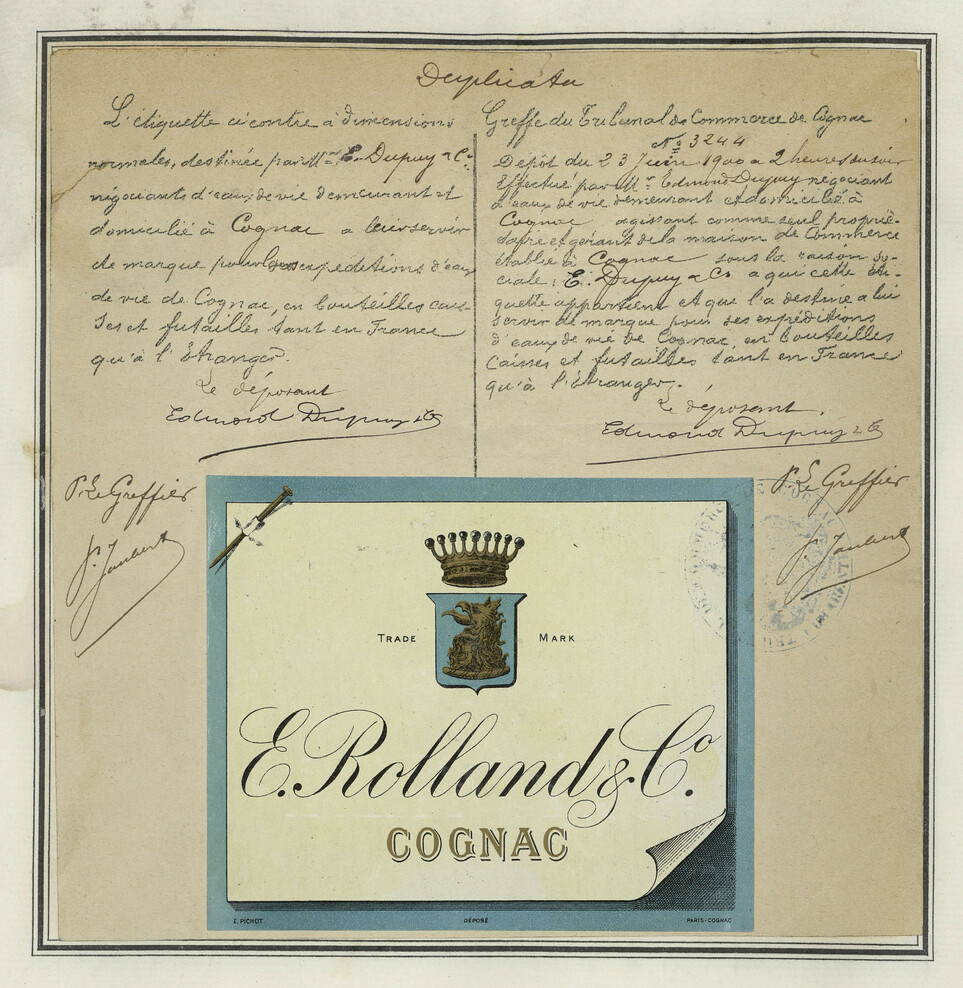 Duplicata
L'étiquette ci contre à dimensions
normales, destinée par Mr E. Dupuy & Co
négociants d'eaux de vie demeurant et
domicilié à Cognac a leur servir
de marque pour expeditions d'eaux
de vie de Cognac, en bouteilles cais-
ses et futailles tant en France
qu'à l'Etranger.
Le déposant
Edmond Dupuy & Co
P. Le Greffier
J. Jaubert
Greffe du Tribunal de Commerce de Cognac
No 3244
Dépôt du 23 Juin 1900 a 2 heures du soir
Effectué par Mr Edmond Dupuy négociant
d'eaux de vie demeurant et domicilié à
Cognac agissant comme seul proprié-
taire et gérant de la maison de Commerce
établie à Cognac sous la raison so-
ciale: E. Dupuy & Co a qui cette éti-
quette appartient et que l'a destinée a lui
servir de marque pour ses expéditions
d'eaux de vie de Cognac, en bouteilles
Caisses et futailles tant en France
qu'à l'étranger.
Le déposant
Edmond Dupuy & Co
P. Le Greffier
J. Jaubert
TRADE MARK
E. Rolland & Co.
COGNAC
E. PICHOT
DÉPOSÉ
PARIS-COGNAC